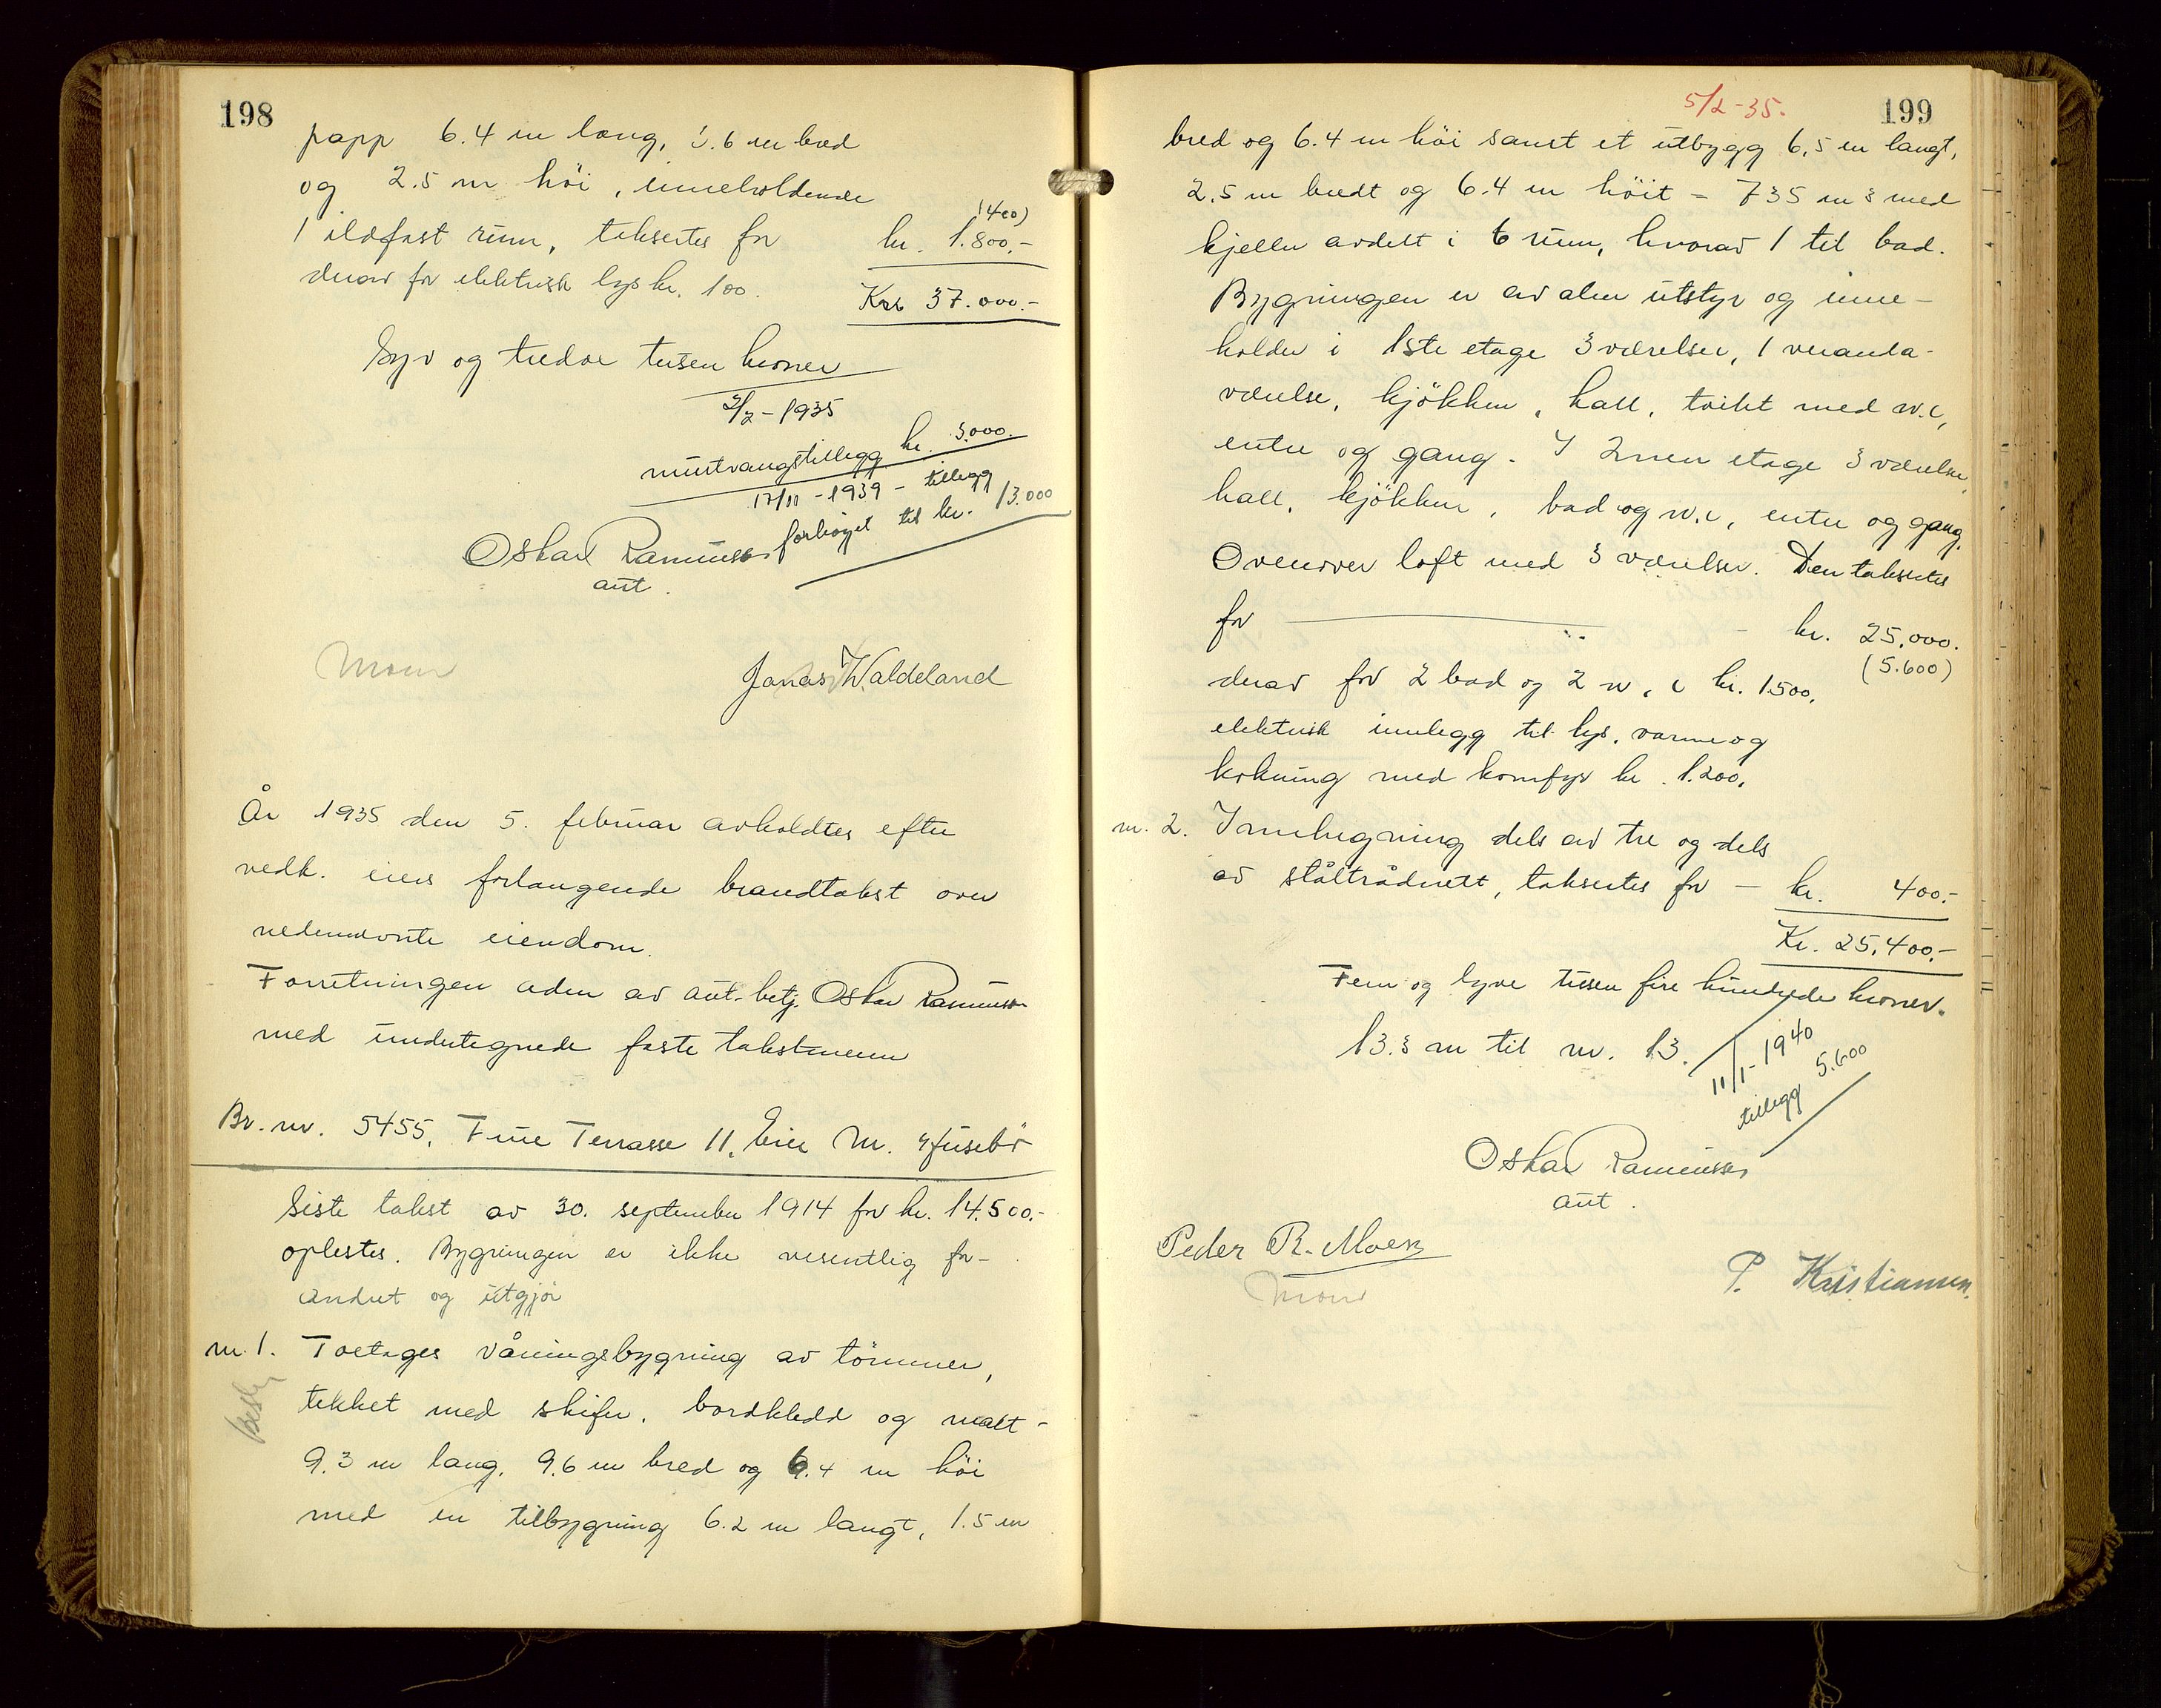 198
papp 6.4 m lang, 3.6 m bred
og 2.5 m höi, inneholdende
1 ildfast rum, taksertes for kr. 1.800.-
(400)
derav for elektrisk lys kr. 100.
Kr. 37.000.-
Syv og tredve tusen kroner
2/2 - 1935
murtvangstillegg kr. 5000.
17/11 - 1939 - tillegg
forhöyet til kr. 13.000
Oskar Rasmussen
aut.
Moen
Jonas Waldeland
År 1935 den 5. februar avholdtes efter
vedk. eiers forlangende brandtakst over
nedennevnte eiendom.
Forretningen aden av aut. betj. Oskar Rasmussen
med undertegnede faste takstmenn
Br. nr. 5455, Fine Terrasse 11. Eier M. Husebö
Siste takst av 30. september 1914 for kr. 14.500.-
oplestes. Bygningen er ikke vesentlig for-
andret og utgjör
nr. 1. Toetages våningsbygning av tömmer,
tekket med skifer, bordkledd og malt -
9.3 m lang, 9.6 m bred og 6.4 m höi
med en tilbygning 6.2 m langt, 1.5 m
5/2 - 35.
199
bred og 6.4 m höi samt et utbygg 6,5 m langt,
2.5 m bredt og 6.4 m höit = 735 m3 med
kjeller avdelt i 6 rum, hvorav 1 til bad.
Bygningen er av alm utstyr og inne-
holder i 1ste etage 3 værelser, 1 veranda-
værelse, kjökken, hall, toilet med w.c,
entre og gang. I 2nen etage 3 værelser,
hall, kjökken, bad og w.c, entre og gang.
Ovenover loft med 3 værelser. Den taksertes
for kr. 25.000.
(5.600)
derav for 2 bad og 2 w.c kr. 1500,
elektrisk innlegg til lys, varme og
kokning med komfyr kr. 1.200.
nr. 2. Innhegning dels av tre og dels
av ståltrådnett, taksertes for - kr. 400.-
Kr. 25.400.-
Fem og tyve tusen fire hundrede kroner.
13.3 m til nr. 13.
11/1 - 1940
tillegg 5.600
Oskar Rasmussen
aut.
Peder R. Moen
Moen
P. Kristiansen.